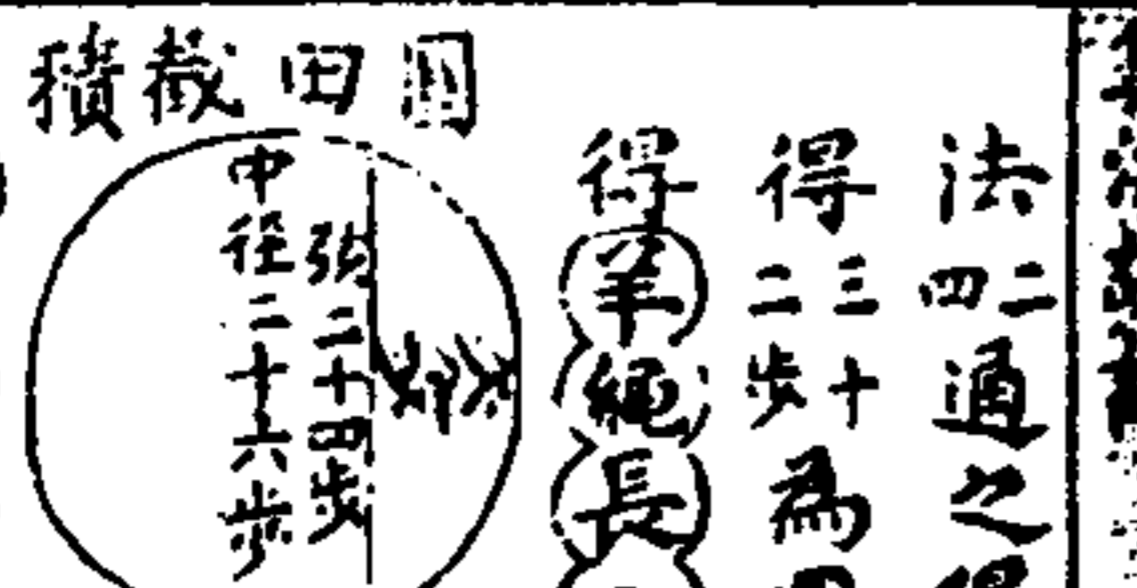 法二四通之
得三十二步為
得羊繩長
圓田截積
弦二十四步
中徑二十六步